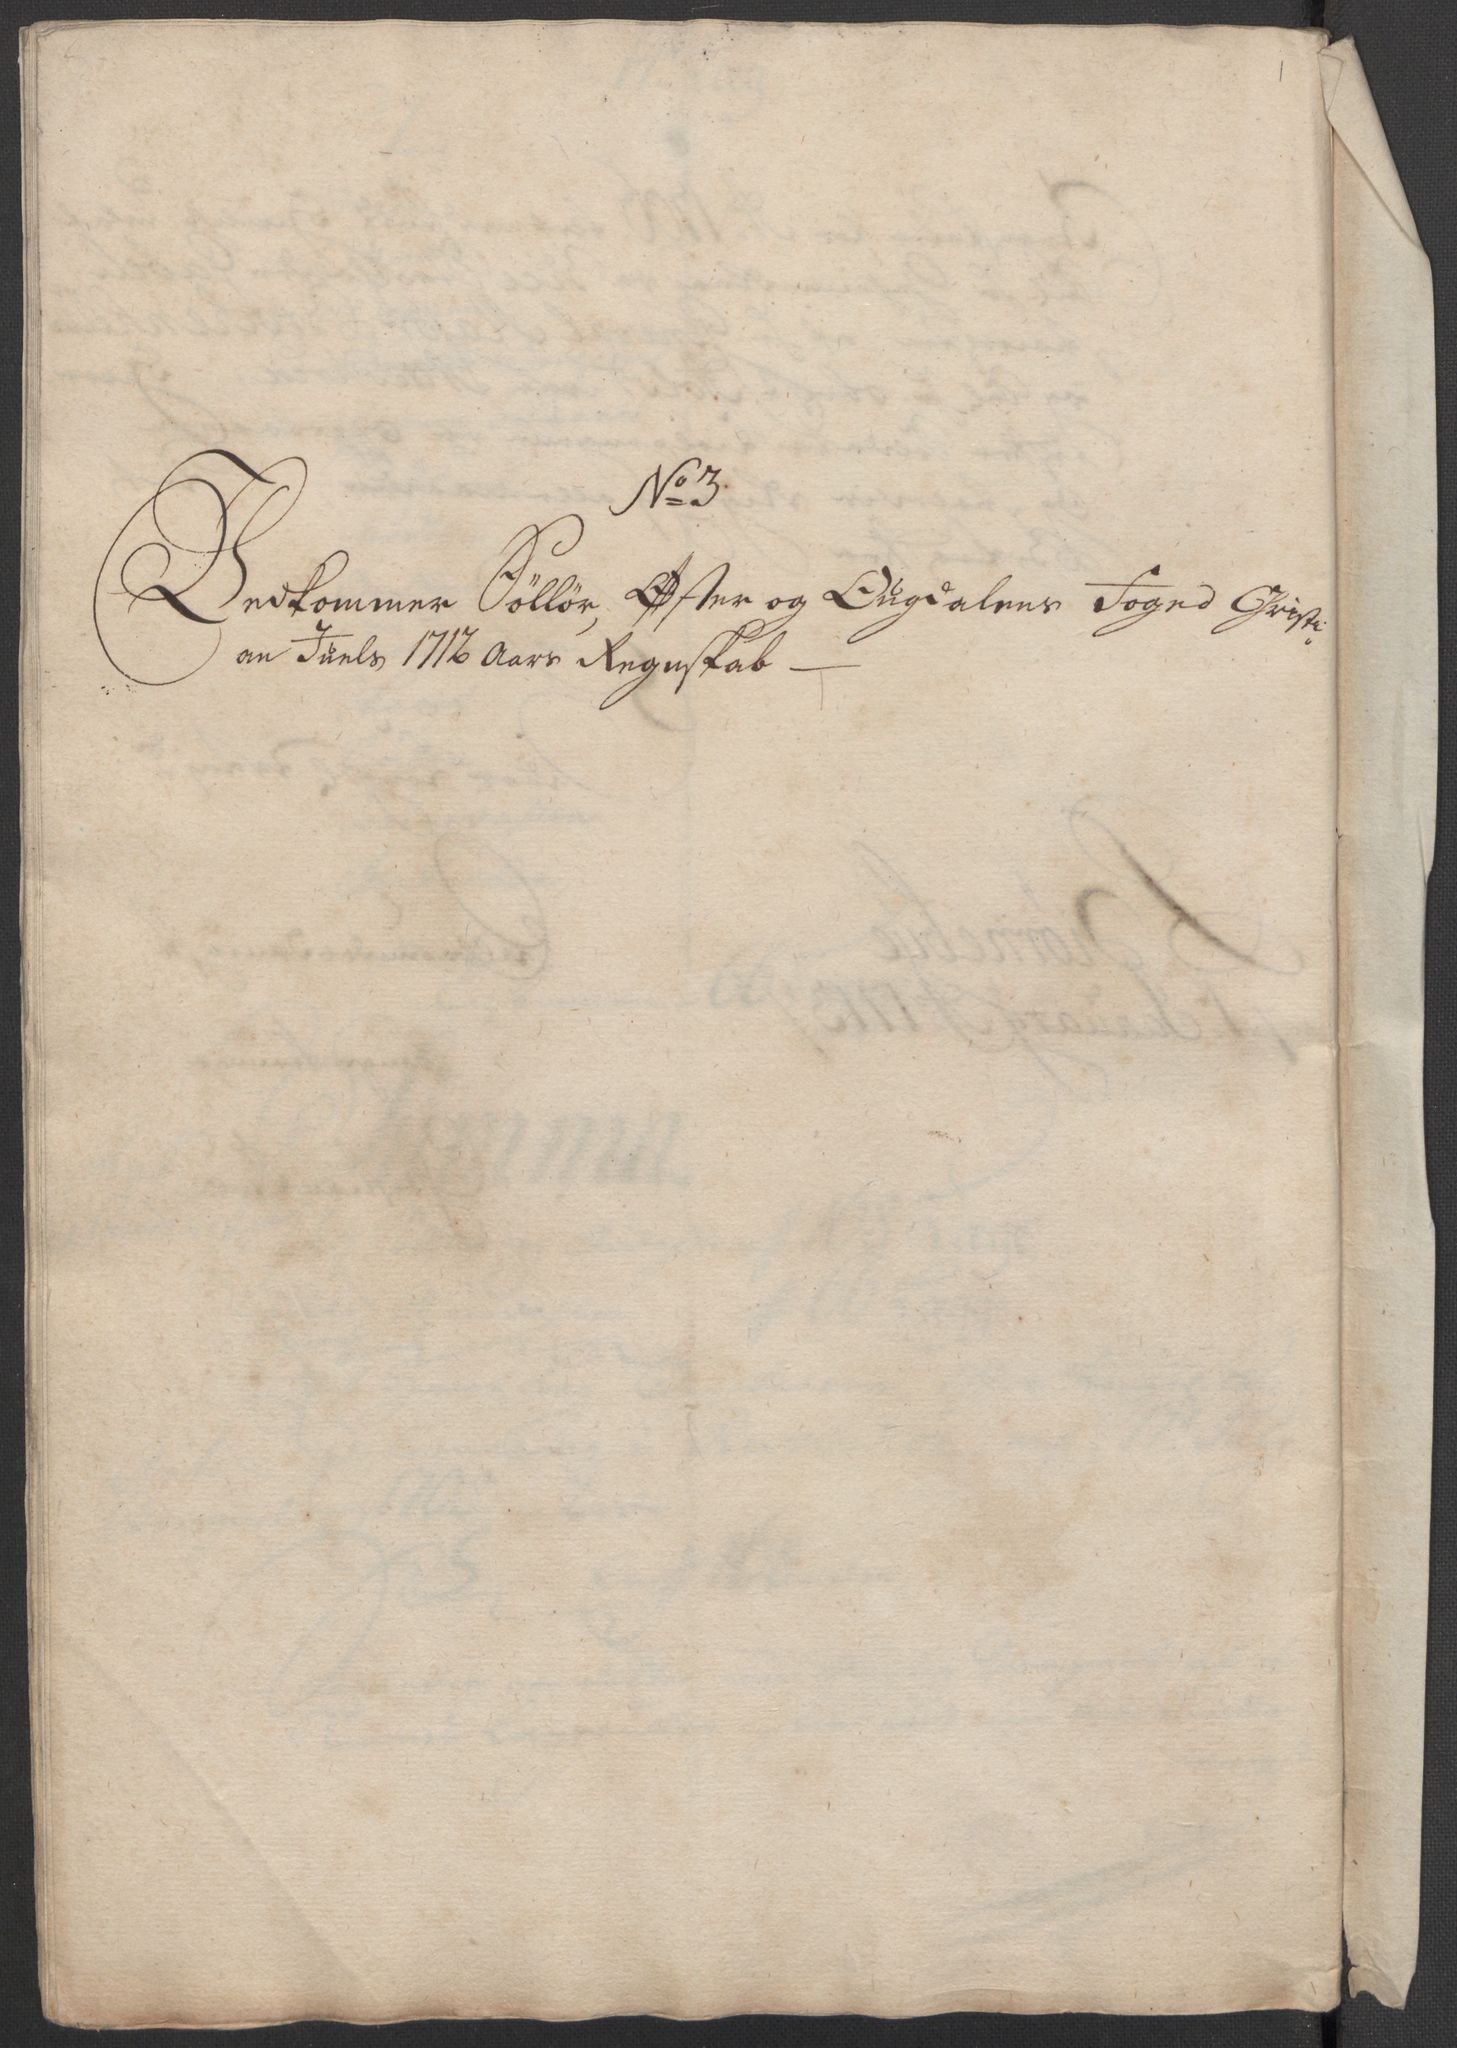 1
No 3
Vedkommer Söllör, Øster og Ougdalens Foged Christi-
an Juels 1712 Aars Regnskab —